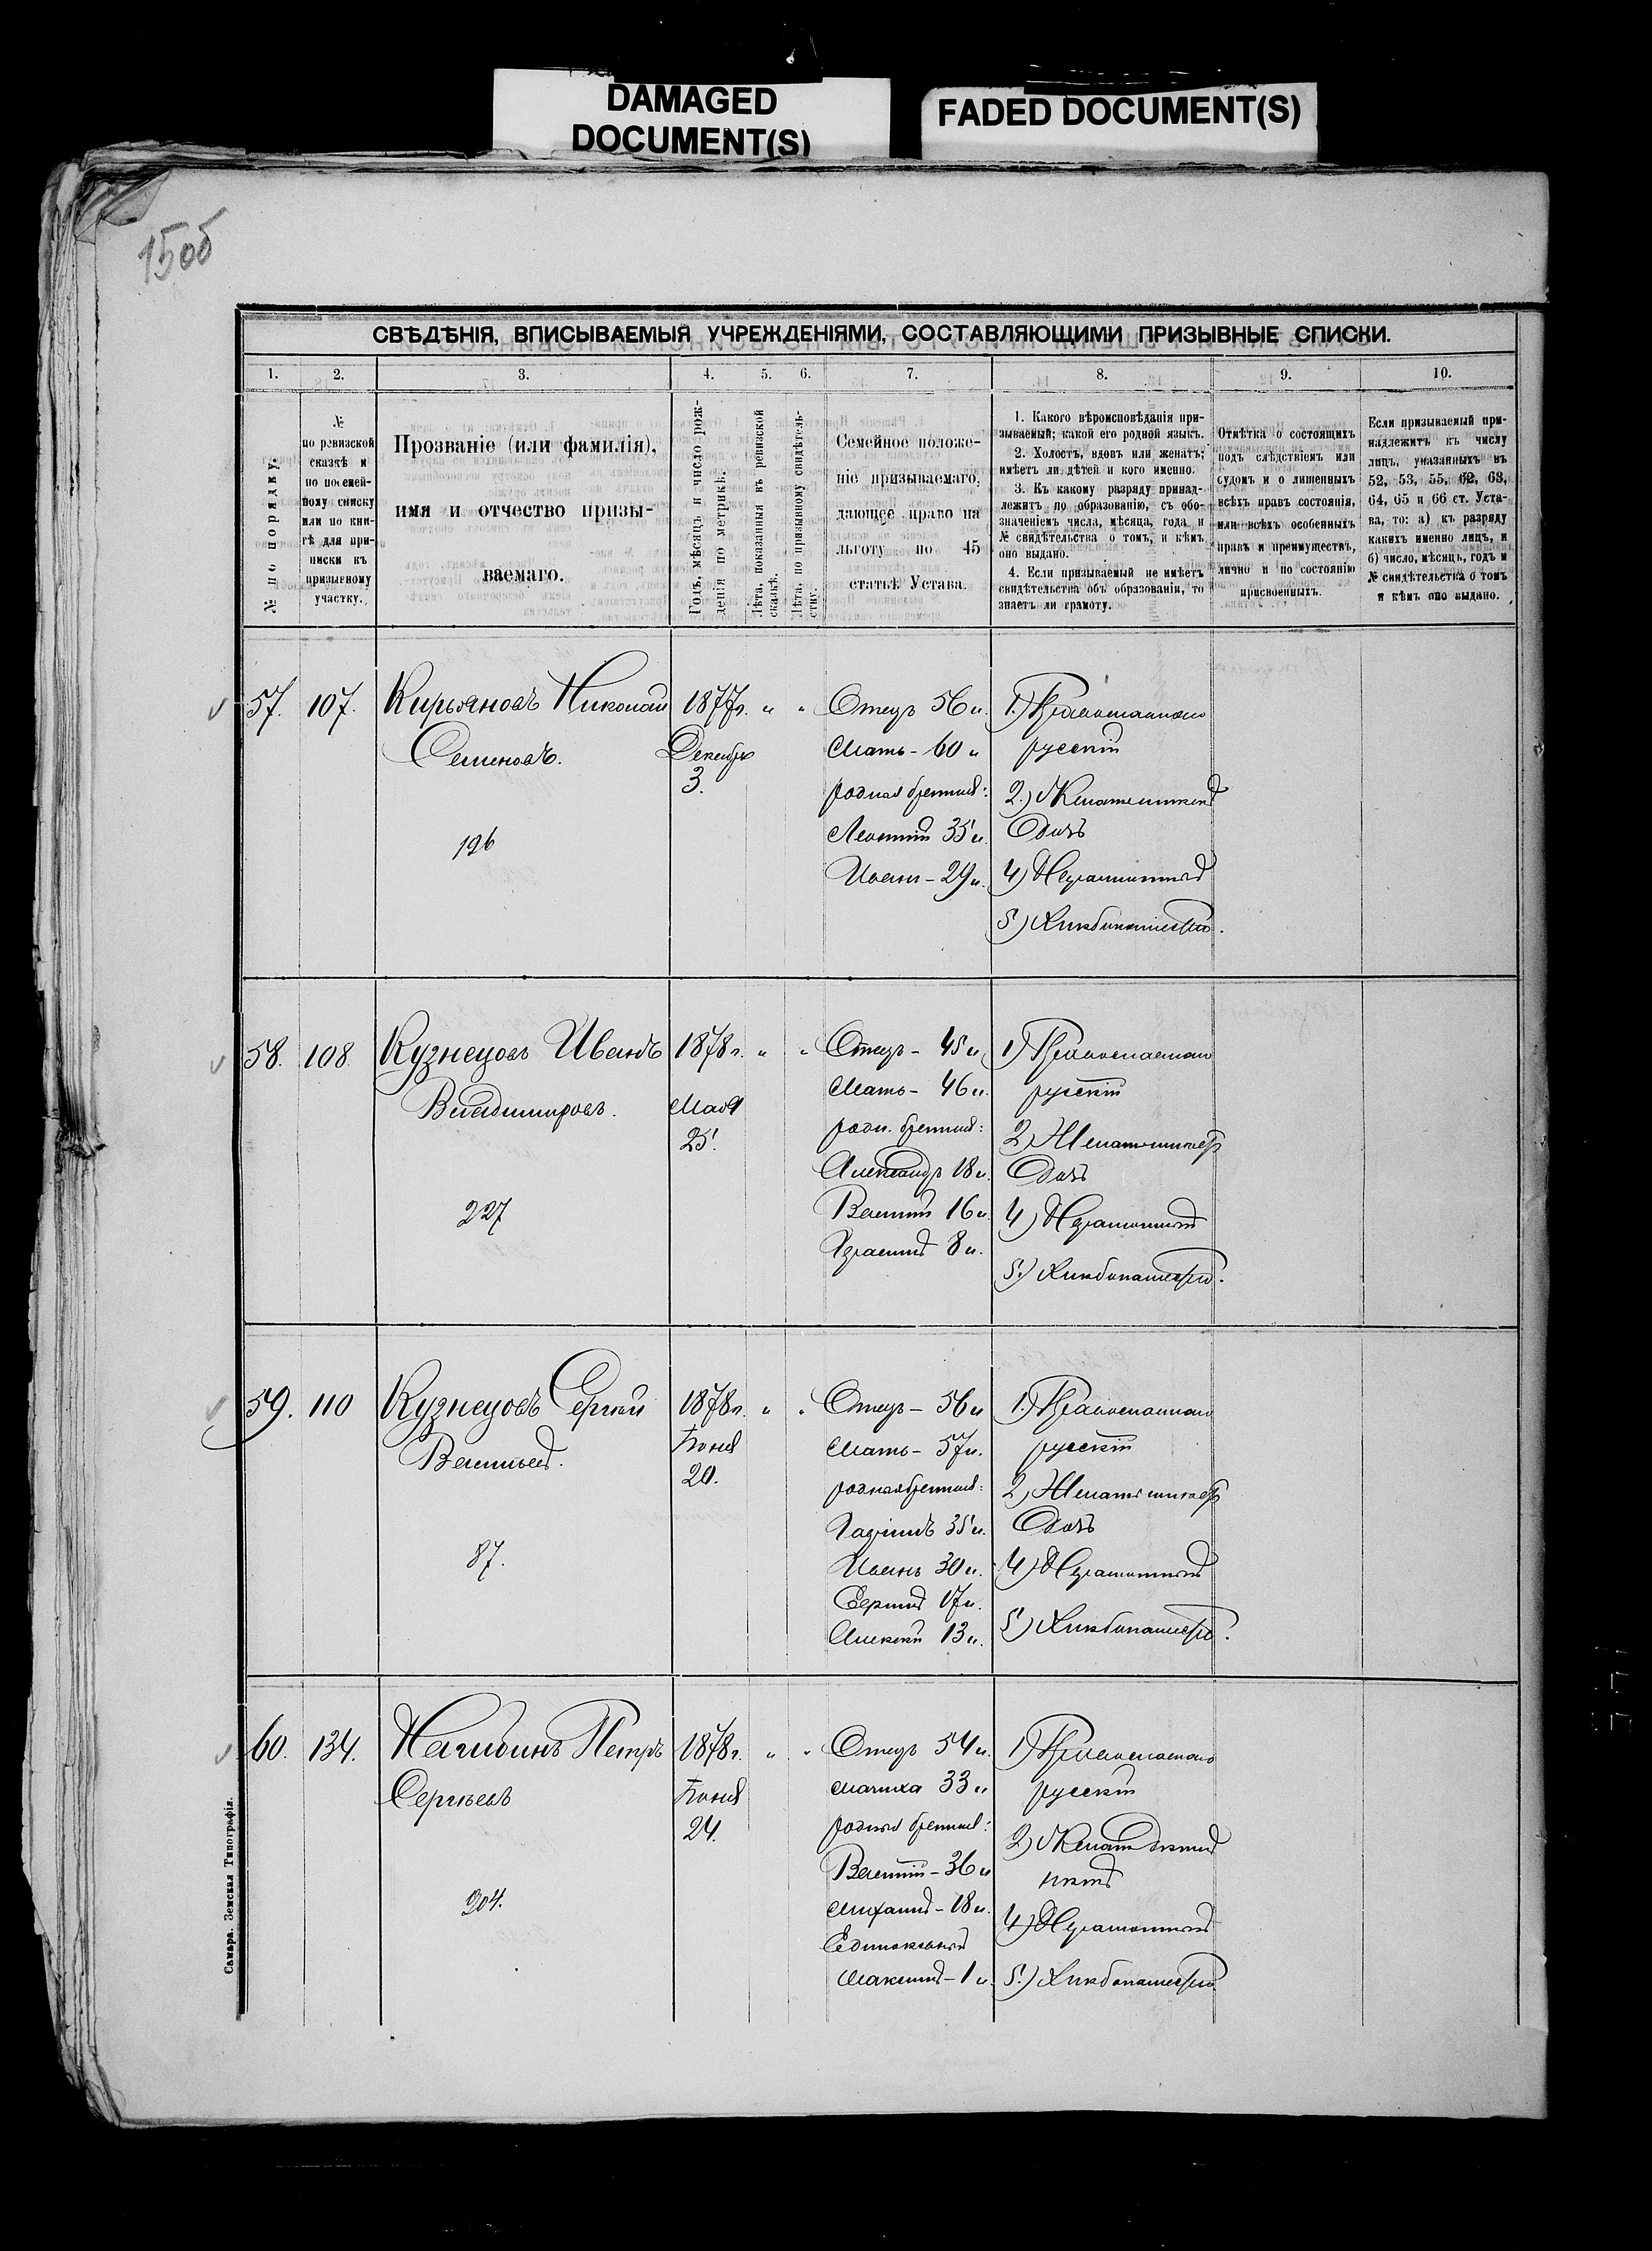 DAMAGED
DOCUMENT(S)
FADED DOCUMENT(S)
15об
СВѢДѢНІЯ, ВПИСЫВАЕМЫЯ УЧРЕЖДЕНІЯМИ, СОСТАВЛЯЮЩИМИ ПРИЗЫВНЫЕ СПИСКИ.
1. 2. 3. 4. 5. 6. 7. 8. 9. 10.
№ по порядку.
№
по ревизской
сказкѣ и
по посемей-
ному списку
или по кни-
гѣ для при-
писки къ
призывному
участку.
Прозваніе (или фамилія),
имя и отчество призы-
ваемаго.
Годъ, мѣсяцъ и число рож-
денія по метрикѣ.
Лѣта, показанныя въ ревизской
сказкѣ.
Лѣта, по призывному свидѣтель-
ству.
Семейное положе-
ніе призываемаго,
дающее право на
льготу по 45
статьѣ Устава.
1. Какого вѣроисповѣданія при-
зываемый; какой его родной языкъ.
2. Холостъ, вдовъ или женатъ;
имѣетъ ли дѣтей и кого именно.
3. Къ какому разряду принад-
лежитъ по образованію, съ обо-
значеніемъ числа, мѣсяца, года и
№ свидѣтельства о томъ, и кѣмъ
оно выдано.
4. Если призываемый не имѣетъ
свидѣтельства объ образованіи, то
знаетъ ли грамоту.
Отмѣтка о состоящихъ
подъ слѣдствіемъ или
судомъ и о лишенныхъ
всѣхъ правъ состоянія,
или всѣхъ особенныхъ
правъ и преимуществъ,
лично и по состоянію
присвоенныхъ.
Если призываемый при-
надлежитъ къ числу
лицъ, указанныхъ въ
52, 53, 55, 62, 63,
64, 65 и 66 ст. Уста-
ва, то: а) къ разряду
какихъ именно лицъ, и
б) число, мѣсяцъ, годъ и
№ свидѣтельства о томъ
и кѣмъ оно выдано.
57. 107. Кирьяновъ Николай
Семеновъ.
196
1877г. " "
Декабр
3.
Отецъ 56 л.
Мать - 60 л
родныя братья:
Леонтій 35 л.
Иванъ - 29 л.
1.) Православнаго
русскій
2.)
4) Неграмотный
5) Хлѣбопашество.
58. 108. Кузнецовъ Иванъ
Владимировъ.
227
1878г. " "
Мая
25.
Отецъ - 45 л.
Мать - 46 л.
родн. братья:
Александръ 18 л.
Василій 16 л.
Герасимъ 8 л.
1) Православнаго
русскій
2)
4) Неграмотный
5.) Хлѣбопашество.
59. 110 Кузнецовъ Сергѣй
Васильев.
87.
1878г. " "
Іюня
20.
Отецъ - 56 л
Мать - 57 л.
родныя братья:
35 л.
Иванъ 30 л.
17 л.
Алексѣй 13 л.
1.) Православнаго
русскій
2)
4) Неграмотный
5) Хлѣбопашество.
60. 134. Нагибинъ Петръ
Сергѣевъ
304.
1878г. " "
Іюня
24.
Отецъ 54 л.
мачиха 33 л
родныя братья:
Василій - 36 л
Михаилъ - 18 л.
Единокровный
Максимъ - 1 л.
1) Православнаго
русскій
2) Женатъ дѣтей
нѣтъ
4) Неграмотный
5.) Хлѣбопашество.
Самара. Земская Типографія.